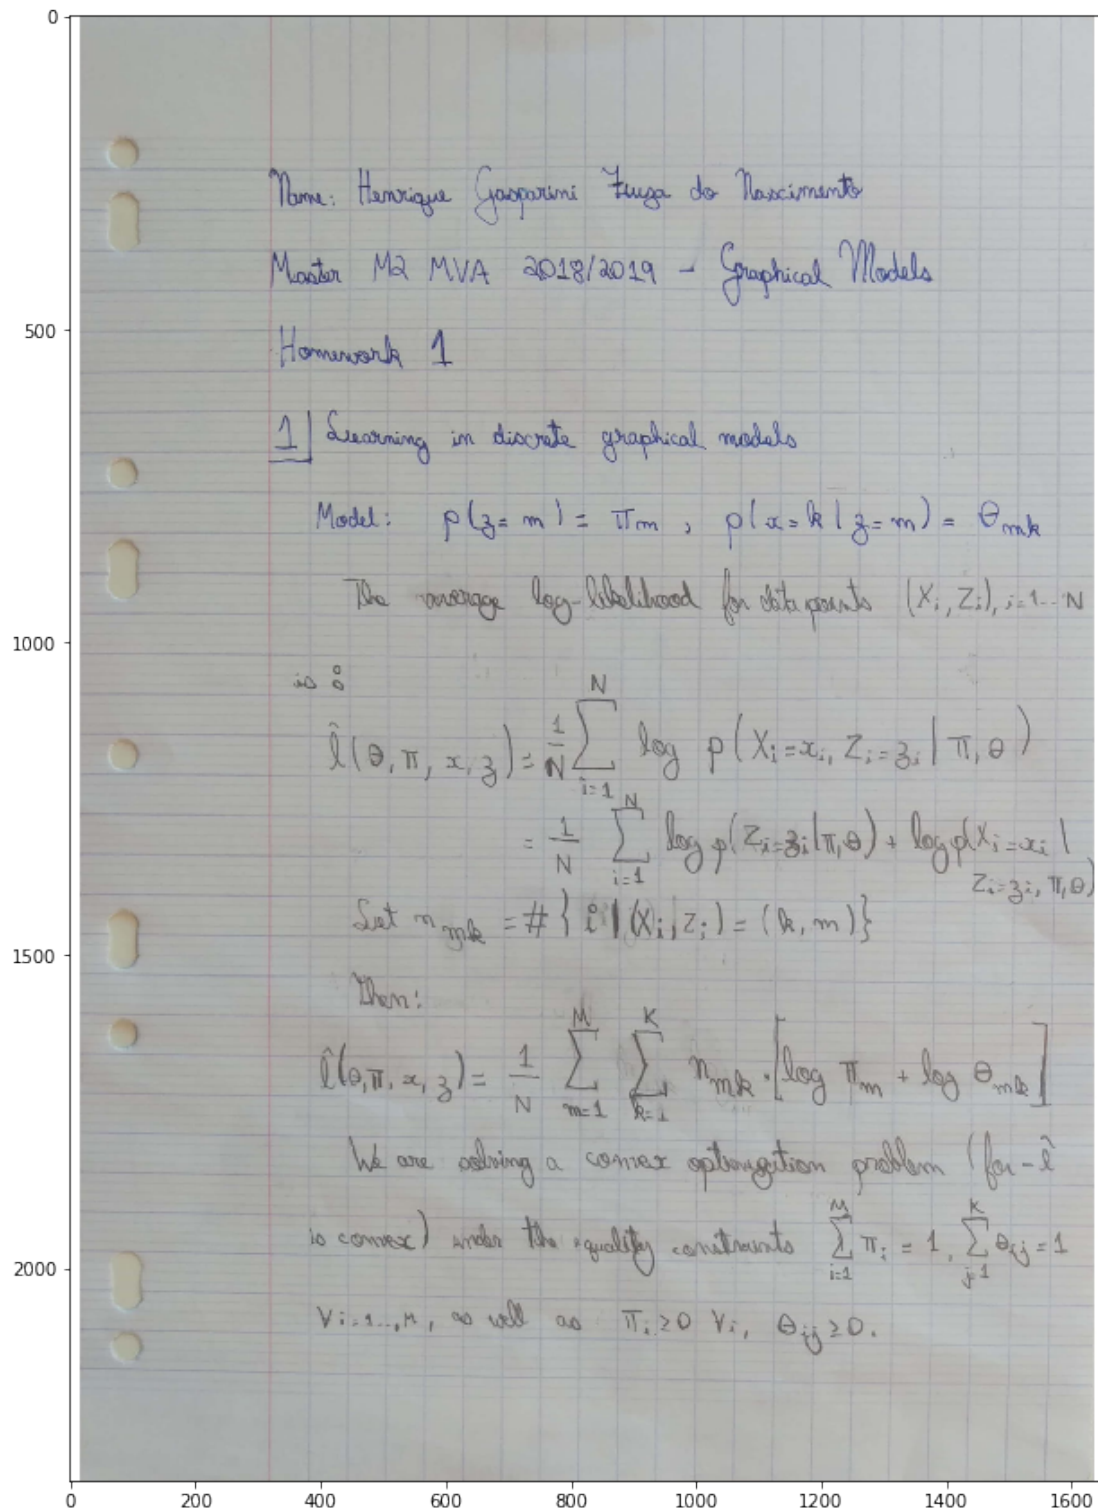 Name: Henrique Gasparini Fiuza do Nascimento
Master M2 MVA 2018/2019 - Graphical Models
Homework 1
1 Learning in discrete graphical models
Model: p(z = m) = π_m , p(x = k | z = m) = θ_mk
The average log-likelihood for data points (X_i, Z_i), i=1...N
is :
l̂(θ, π, x, z) = 1/N ∑_{i=1}^{N} log p(X_i = x_i, Z_i = z_i | π, θ)
= 1/N ∑_{i=1}^{N} log p(Z_i = z_i | π, θ) + log p(X_i = x_i |
Z_i = z_i, π, θ)
Let n_mk = # { i | (X_i, Z_i) = (k, m) }
Then:
l̂(θ, π, x, z) = 1/N ∑_{m=1}^{M} ∑_{k=1}^{K} n_mk · [log π_m + log θ_mk]
We are solving a convex optimization problem (for -l̂
is convex) under the equality constraints ∑_{i=1}^{M} π_i = 1, ∑_{j=1}^{K} θ_ij = 1
∀ i=1...,M, as well as π_i ≥ 0 ∀i, θ_ij ≥ 0.
0
500
1000
1500
2000
0 200 400 600 800 1000 1200 1400 1600